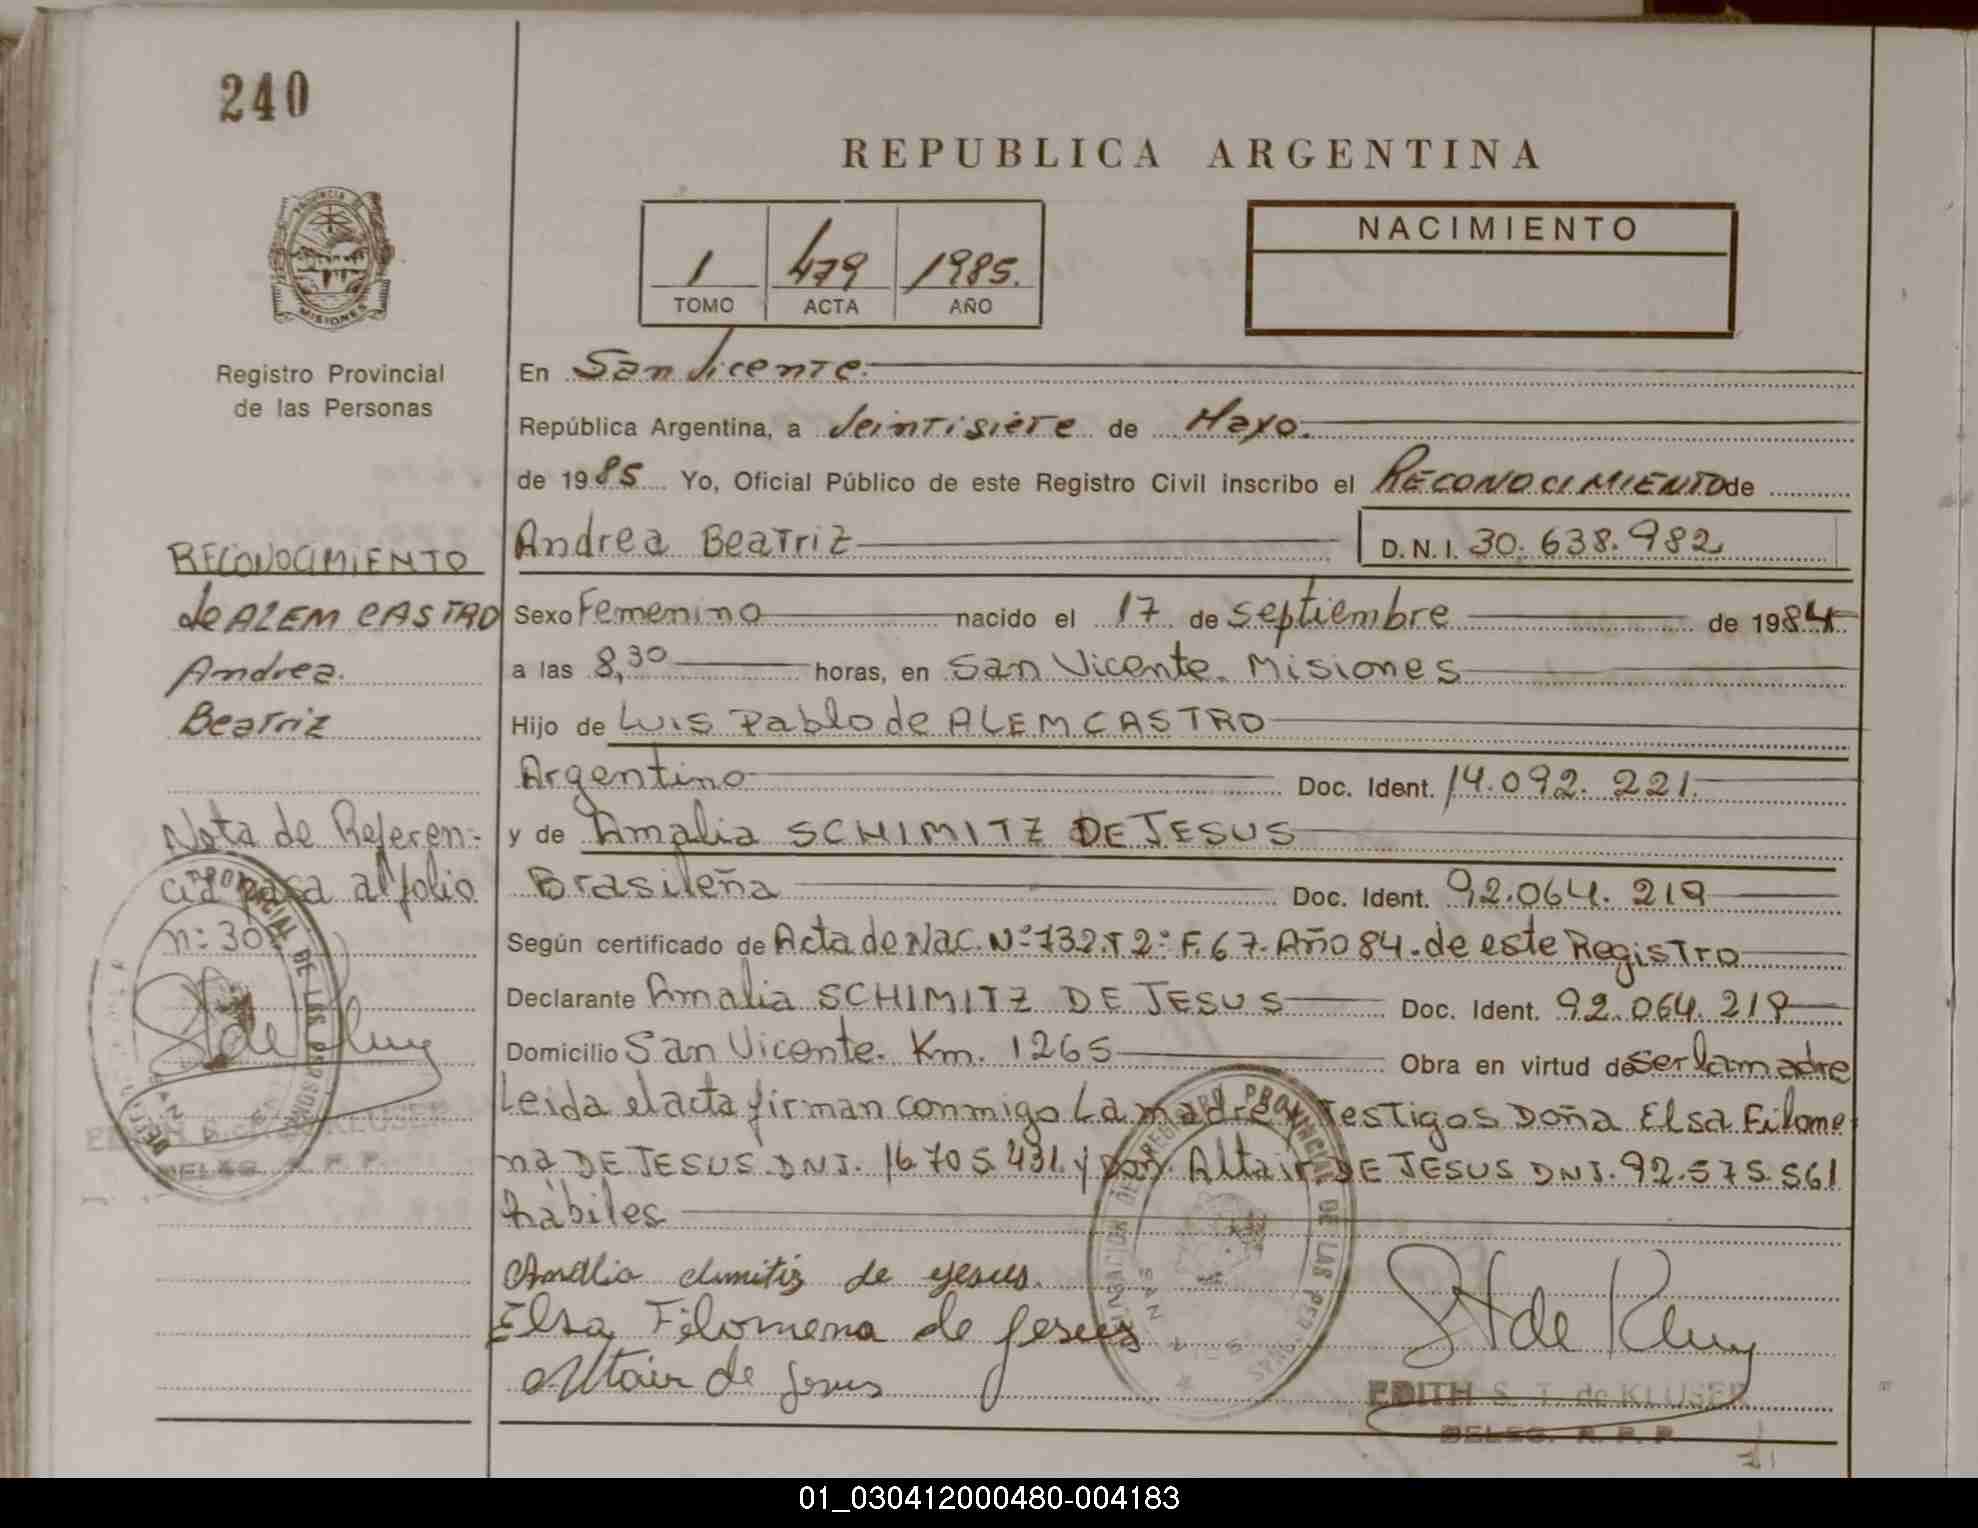 240
REPUBLICA ARGENTINA
PROVINCIA DE
MISIONES
Registro Provincial
de las Personas
1 479 1985.
TOMO ACTA AÑO
NACIMIENTO
En San Vicente.
República Argentina, a Veintisiete de Mayo.
de 1985 Yo, Oficial Público de este Registro Civil inscribo el RECONOCIMIENTO de
Andrea Beatriz D.N.I. 30.638.982
Sexo Femenino nacido el 17 de septiembre de 1984
a las 8,30 horas, en San Vicente. Misiones
Hijo de Luis Pablo de ALEM CASTRO
Argentino Doc. Ident. 14.092.221.
y de Amalia SCHIMITZ DE JESUS
Brasileña Doc. Ident. 92.064.219
Según certificado de Acta de Nac. Nº 732. T 2º F. 67. Año 84. de este Registro
Declarante Amalia SCHIMITZ DE JESUS Doc. Ident. 92.064.219
Domicilio San Vicente. Km. 1265 Obra en virtud de ser la madre
Leida el acta firman conmigo La madre y Testigos Doña Elsa Filome
na DE JESUS DNI. 16.705.431 y Don Altair DE JESUS DNI. 92.575.561
hábiles
Elsa Filomena de Jesus
Altair de Jesus
EDITH S. T. de KLUSER
DELEG. R. P. P.
RECONOCIMIENTO
de ALEM CASTRO
Andrea
Beatriz
Nota de Referen-
cia pasa al folio
n: 30
DELEG. R. P. P.
01_030412000480-004183